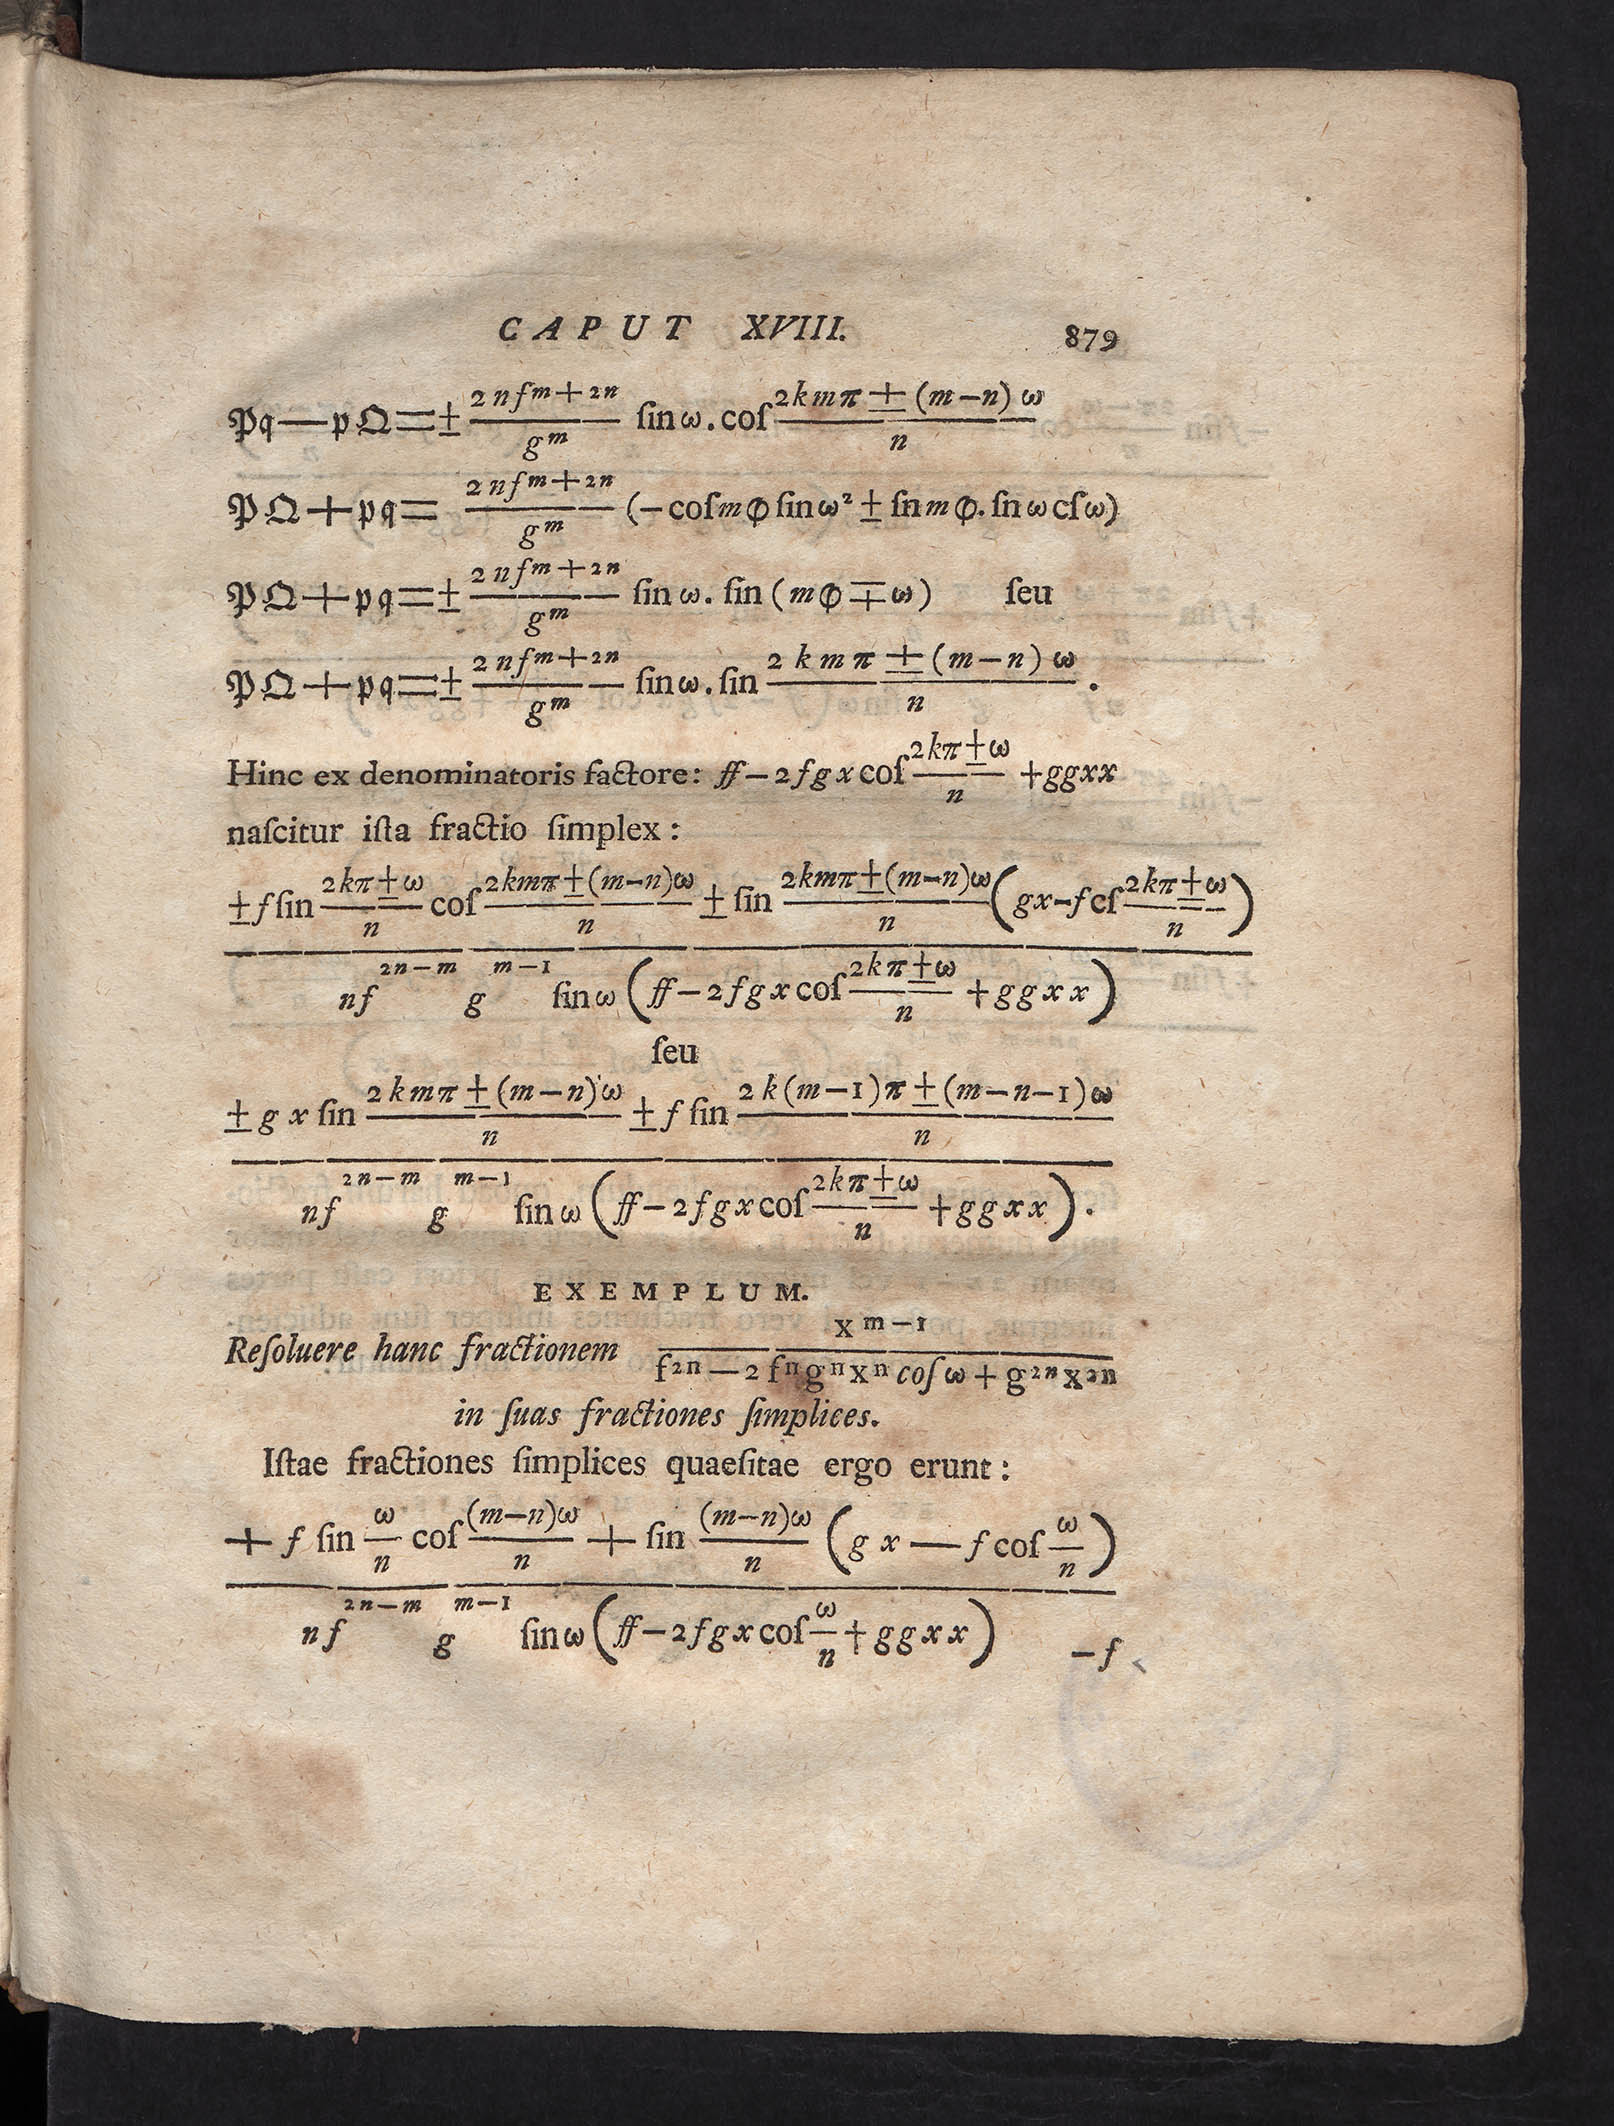 CAPUT XVIII. 879
𝔓𝔮 — 𝔭𝔔 = ± \frac{2nf^{m+2n}}{g^m} ſin ω. coſ \frac{2kmπ ± (m−n)ω}{n}
𝔓𝔔 + 𝔭𝔮 = \frac{2nf^{m+2n}}{g^m} (− coſ mφ ſin ω² ± ſn mφ. ſn ω cſ ω)
𝔓𝔔 + 𝔭𝔮 = ± \frac{2nf^{m+2n}}{g^m} ſin ω. ſin (mφ ∓ ω) ſeu
𝔓𝔔 + 𝔭𝔮 = ± \frac{2nf^{m+2n}}{g^m} ſin ω. ſin \frac{2kmπ ± (m−n)ω}{n}.
Hinc ex denominatoris factore: ff − 2fgx coſ \frac{2kπ ± ω}{n} + ggxx
naſcitur iſta fractio ſimplex:
\frac{± f ſin \frac{2kπ ± ω}{n} coſ \frac{2kmπ ± (m−n)ω}{n} ± ſin \frac{2kmπ ± (m−n)ω}{n} (gx − f cſ \frac{2kπ ± ω}{n})}{nf^{2n−m} g^{m−1} ſin ω (ff − 2fgx coſ \frac{2kπ ± ω}{n} + ggxx)}
ſeu
\frac{± gx ſin \frac{2kmπ ± (m−n)ω}{n} ± f ſin \frac{2k(m−1)π ± (m−n−1)ω}{n}}{nf^{2n−m} g^{m−1} ſin ω (ff − 2fgx coſ \frac{2kπ ± ω}{n} + ggxx)}.
EXEMPLUM.
Reſoluere hanc fractionem \frac{x^{m−1}}{f^{2n} — 2f^n g^n x^n coſ ω + g^{2n} x^{2n}}
in ſuas fractiones ſimplices.
Iſtae fractiones ſimplices quaeſitae ergo erunt:
\frac{+ f ſin \frac{ω}{n} coſ \frac{(m−n)ω}{n} + ſin \frac{(m−n)ω}{n} (gx — f coſ \frac{ω}{n})}{nf^{2n−m} g^{m−1} ſin ω (ff − 2fgx coſ \frac{ω}{n} + ggxx)}
− f